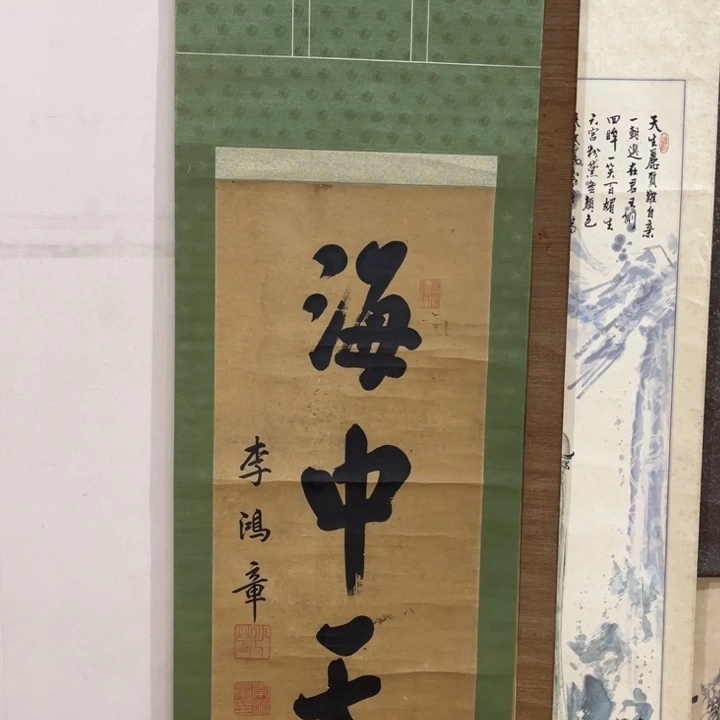 海中
李鴻章
天生麗質難自棄
一朝選在君王側
回眸一笑百媚生
六宮粉黛無顏色